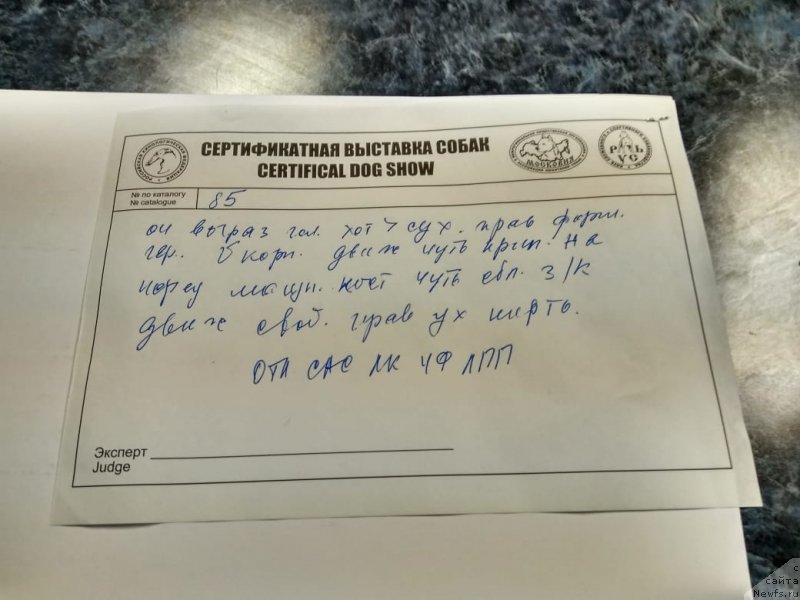 СЕРТИФИКАТНАЯ ВЫСТАВКА СОБАК
CERTIFICAL DOG SHOW
МОСКОВИЯ
№ по каталогу
№ catalogue
85
оч выраз гол. хот > сух. прав форм.
корп. движ чуть прип. на
перед мощн. кост чуть сбл. з/к
движ своб. прав ух шерсть.
ОТЛ САС ЛК ЧФ ЛПП
Эксперт
Judge
с
сайта
Newfs.ru